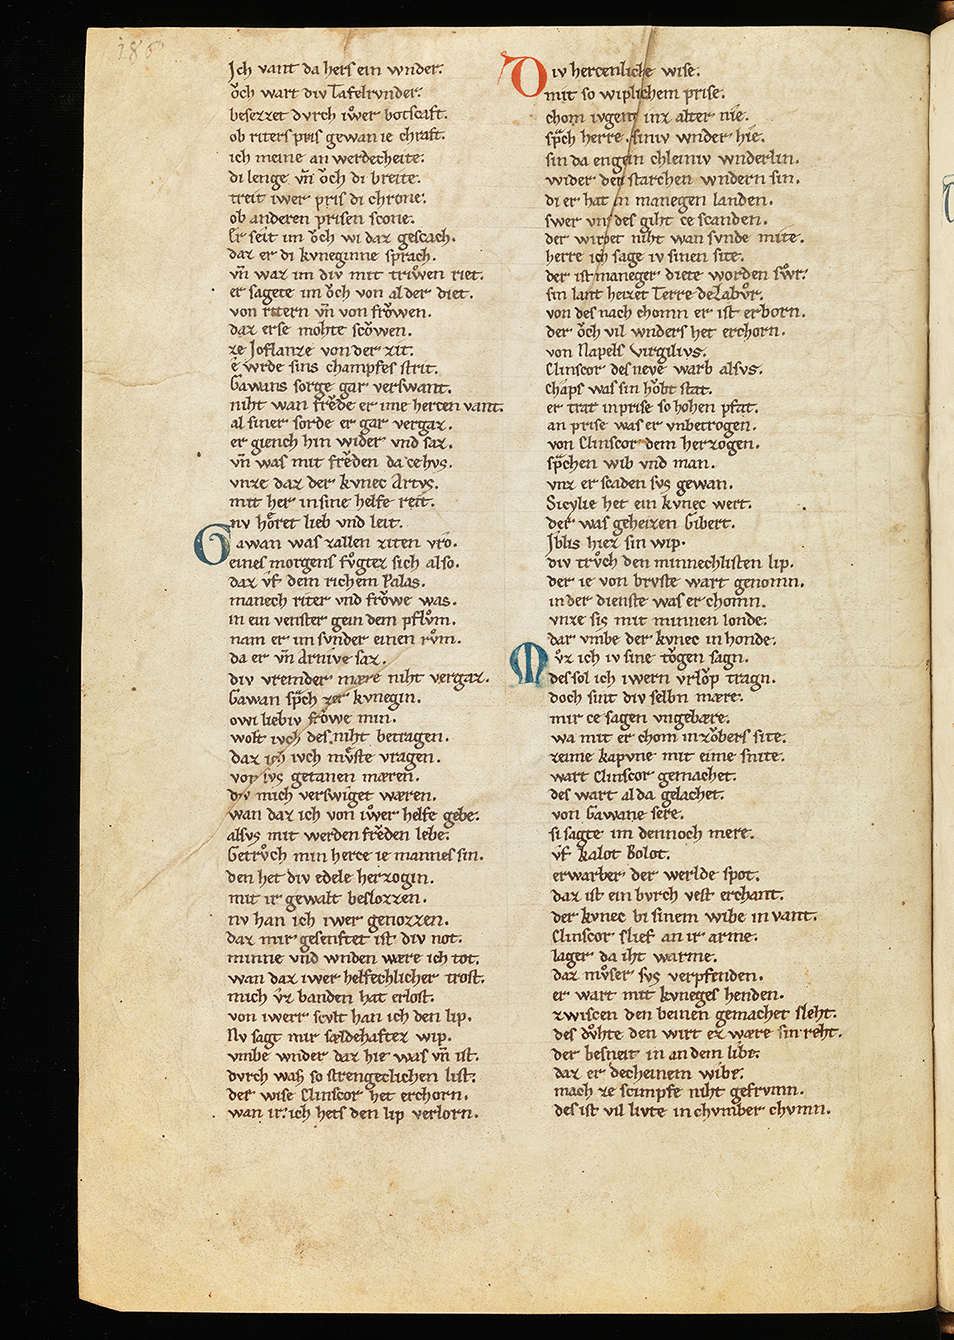 186
Ich vant da hers ein wnder.
oͮch wart div Tafelrvnder.
besezzet dvrch iwͦer botscaft.
ob riters pris gewan ie chraft.
ich meine an werdecheite.
di lenge vn̄ oͮch di breite.
treit iwer pris di chrone.
ob anderen prisen scone.
Er seit im oͮch wi daz gescach.
daz er di kvneginne sprach.
vn̄ waz im div mit triwͦen riet.
er sagete im oͮch von al der diet.
von ritern vn̄ von froͮwen.
daz erse mohte scoͮwen.
ze Joflanze von der zit.
e wrde sins champfes strit.
Gawans sorge gar verswant.
niht wan freͮde er ime hercen vant.
al siner sorde er gar vergaz.
er giench hin wider vnd saz.
vn̄ was mit freͮden da ce hvs.
vnze daz der kvnec Artvs.
mit her in sine helfe reit.
nv hoͤret lieb vnd leit.
Gawan was zallen ziten vro.
eines morgens fvͦgtez sich also.
daz vf dem richem Palas.
manech riter vnd froͮwe was.
in ein venster gein dem pflvͦm.
nam er im svnder einen rvͦm.
da er vn̄ Arnive saz.
div vremder mære niht vergaz.
Gawan sp̄ch zer kvnegin.
owi liebiv froͮwe min.
wolt ivch des niht betragen.
daz ich ivch mvͦste vragen.
von svs getanen mæren.
div mich verswiget wæren.
wan daz ich von iwͦer helfe gebe.
alsvs mit werden freͮden lebe.
Getrvͦch min herce ie mannes sin.
den het div edele herzogin.
mit ir gewalt beslozzen.
nv han ich iwer genozzen.
daz mir gesenftet ist div not.
minne vnd wnden wære ich tot.
wan daz iwer helfechlicher trost.
mich vz banden hat erlost.
von iwerr scvlt han ich den lip.
Nv sagt mir sældehaftez wip.
vmbe wnder daz hie was vn̄ ist.
dvrch waz so strengeclichen list.
der wise Clinscor het erchorn.
wan ir. ich hets den lip verlorn.
Div hercenliche wise.
mit so wiplichem prise.
chom ivgent inz alter nie.
sp̄ch herre siniv wnder hie.
sin da engein chleiniv wnderlin.
wider den starchen wndern sin.
di er hat in manegen landen.
swer vns des giht ce scanden.
der wirbet niht wan svnde mite.
herre ich sage iv sinen site.
der ist maneger diete worden svͦr.
sin lant heizet Terre de Labvͦr.
von des nach chomn er ist erborn.
der oͮch vil wnders het erchorn.
von Napels Virgilivs.
Clinscor des neve warb alsvs.
Chaps was sin hoͮbt stat.
er trat in prise so hohen pfat.
an prise was er vnbetrogen.
von Clinscor dem herzogen.
sp̄chen wib vnd man.
vnz er scaden svs gewan.
Sicylie het ein kvnec wert.
der was geheizen Gibert.
Jblis hiez sin wip.
div trvͦch den minnechlisten lip.
der ie von brvste wart genomn.
in der dienste was er chomn.
vnze sis mit minnen londe.
dar vmbe der kvnec in honde.
Mvͦz ich iv sine toͮgen sagn.
des sol ich iwern vrloͮp tragn.
doch sint div selbn mære.
mir ce sagen vngebære.
wa mit er chom in zoͮbers site.
zeime kapvne mit eime snite.
wart Clinscor gemachet.
des wart al da gelachet.
von Gawane sere.
si sagte im dennoch mere.
vf kalot Bolot.
erwarber der werlde spot.
daz ist ein bvrch vest erchant.
der kvnec bi sinem wibe in vant.
Clinscor slief an ir arme.
lager da iht warme.
daz mvͦser svs verpfenden.
er wart mit kvneges henden.
zwiscen den beinen gemachet sleht.
des dvͦhte den wirt ez wære sin reht.
der besneit in an dem libe.
daz er decheinem wibe.
mach ze scimpfe niht gefrvmn.
des ist vil livte in chvmber chvmn.